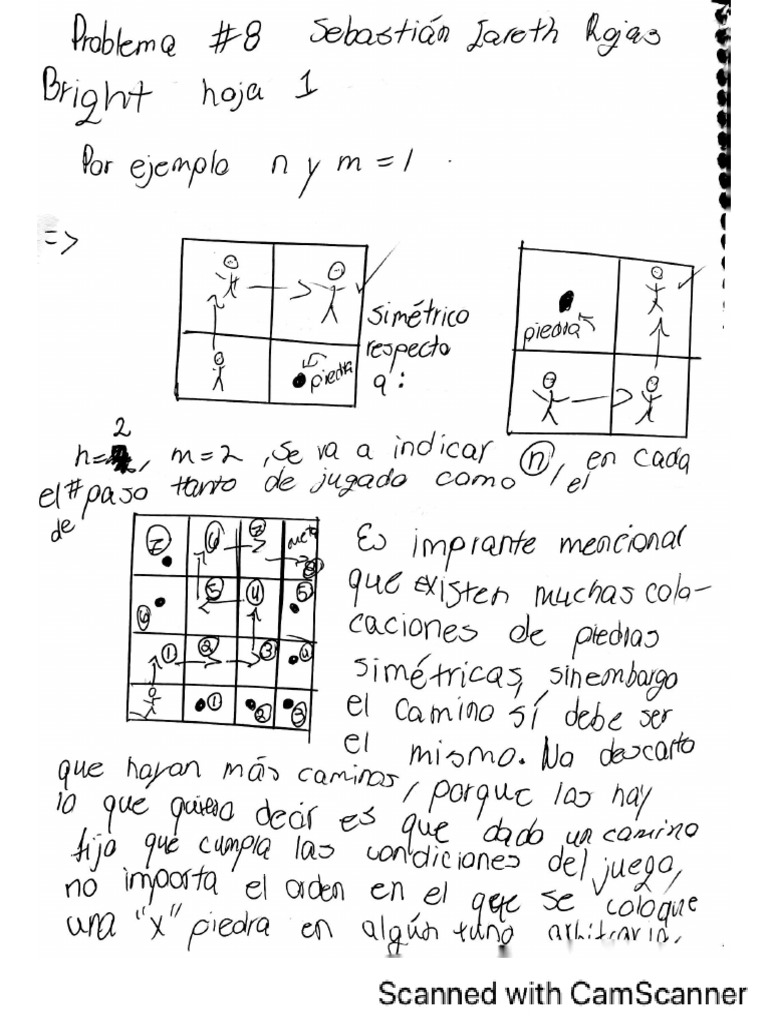 Problema #8 Sebastián Jareth Rojas
Bright hoja 1
Por ejemplo n y m = 1.
=>
piedra
simétrico
respecto
a:
piedra
2
n= , m=2 , se va a indicar (n), en cada
el # paso tanto de jugado como el
de
7 6 7 meta
6 5 4 5
1 2 3 4
1 2 3
Es imprante mencional
que existen muchas cola-
caciones de piedras
simétricas, sinembargo
el camino sí debe ser
el mismo. No descarto
que hayan más caminos, porque los hay
lo que quiero decir es que dado un camino
fijo que cumpla las condiciones del juego,
no importa el orden en el que se coloque
una "x" piedra en algún tuno arbitrario.
Scanned with CamScanner